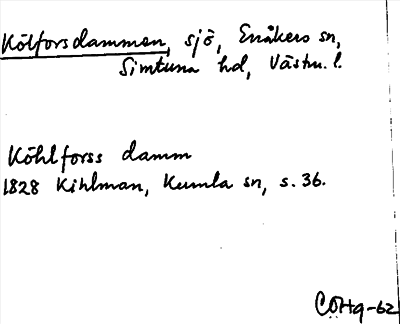 Kölforsdammen, sjö, Enåkers sn,
Simtuna hd, Västm. l.
Köhlforss damm
1828 Kihlman, Kumla sn, s. 36.
COHg-62